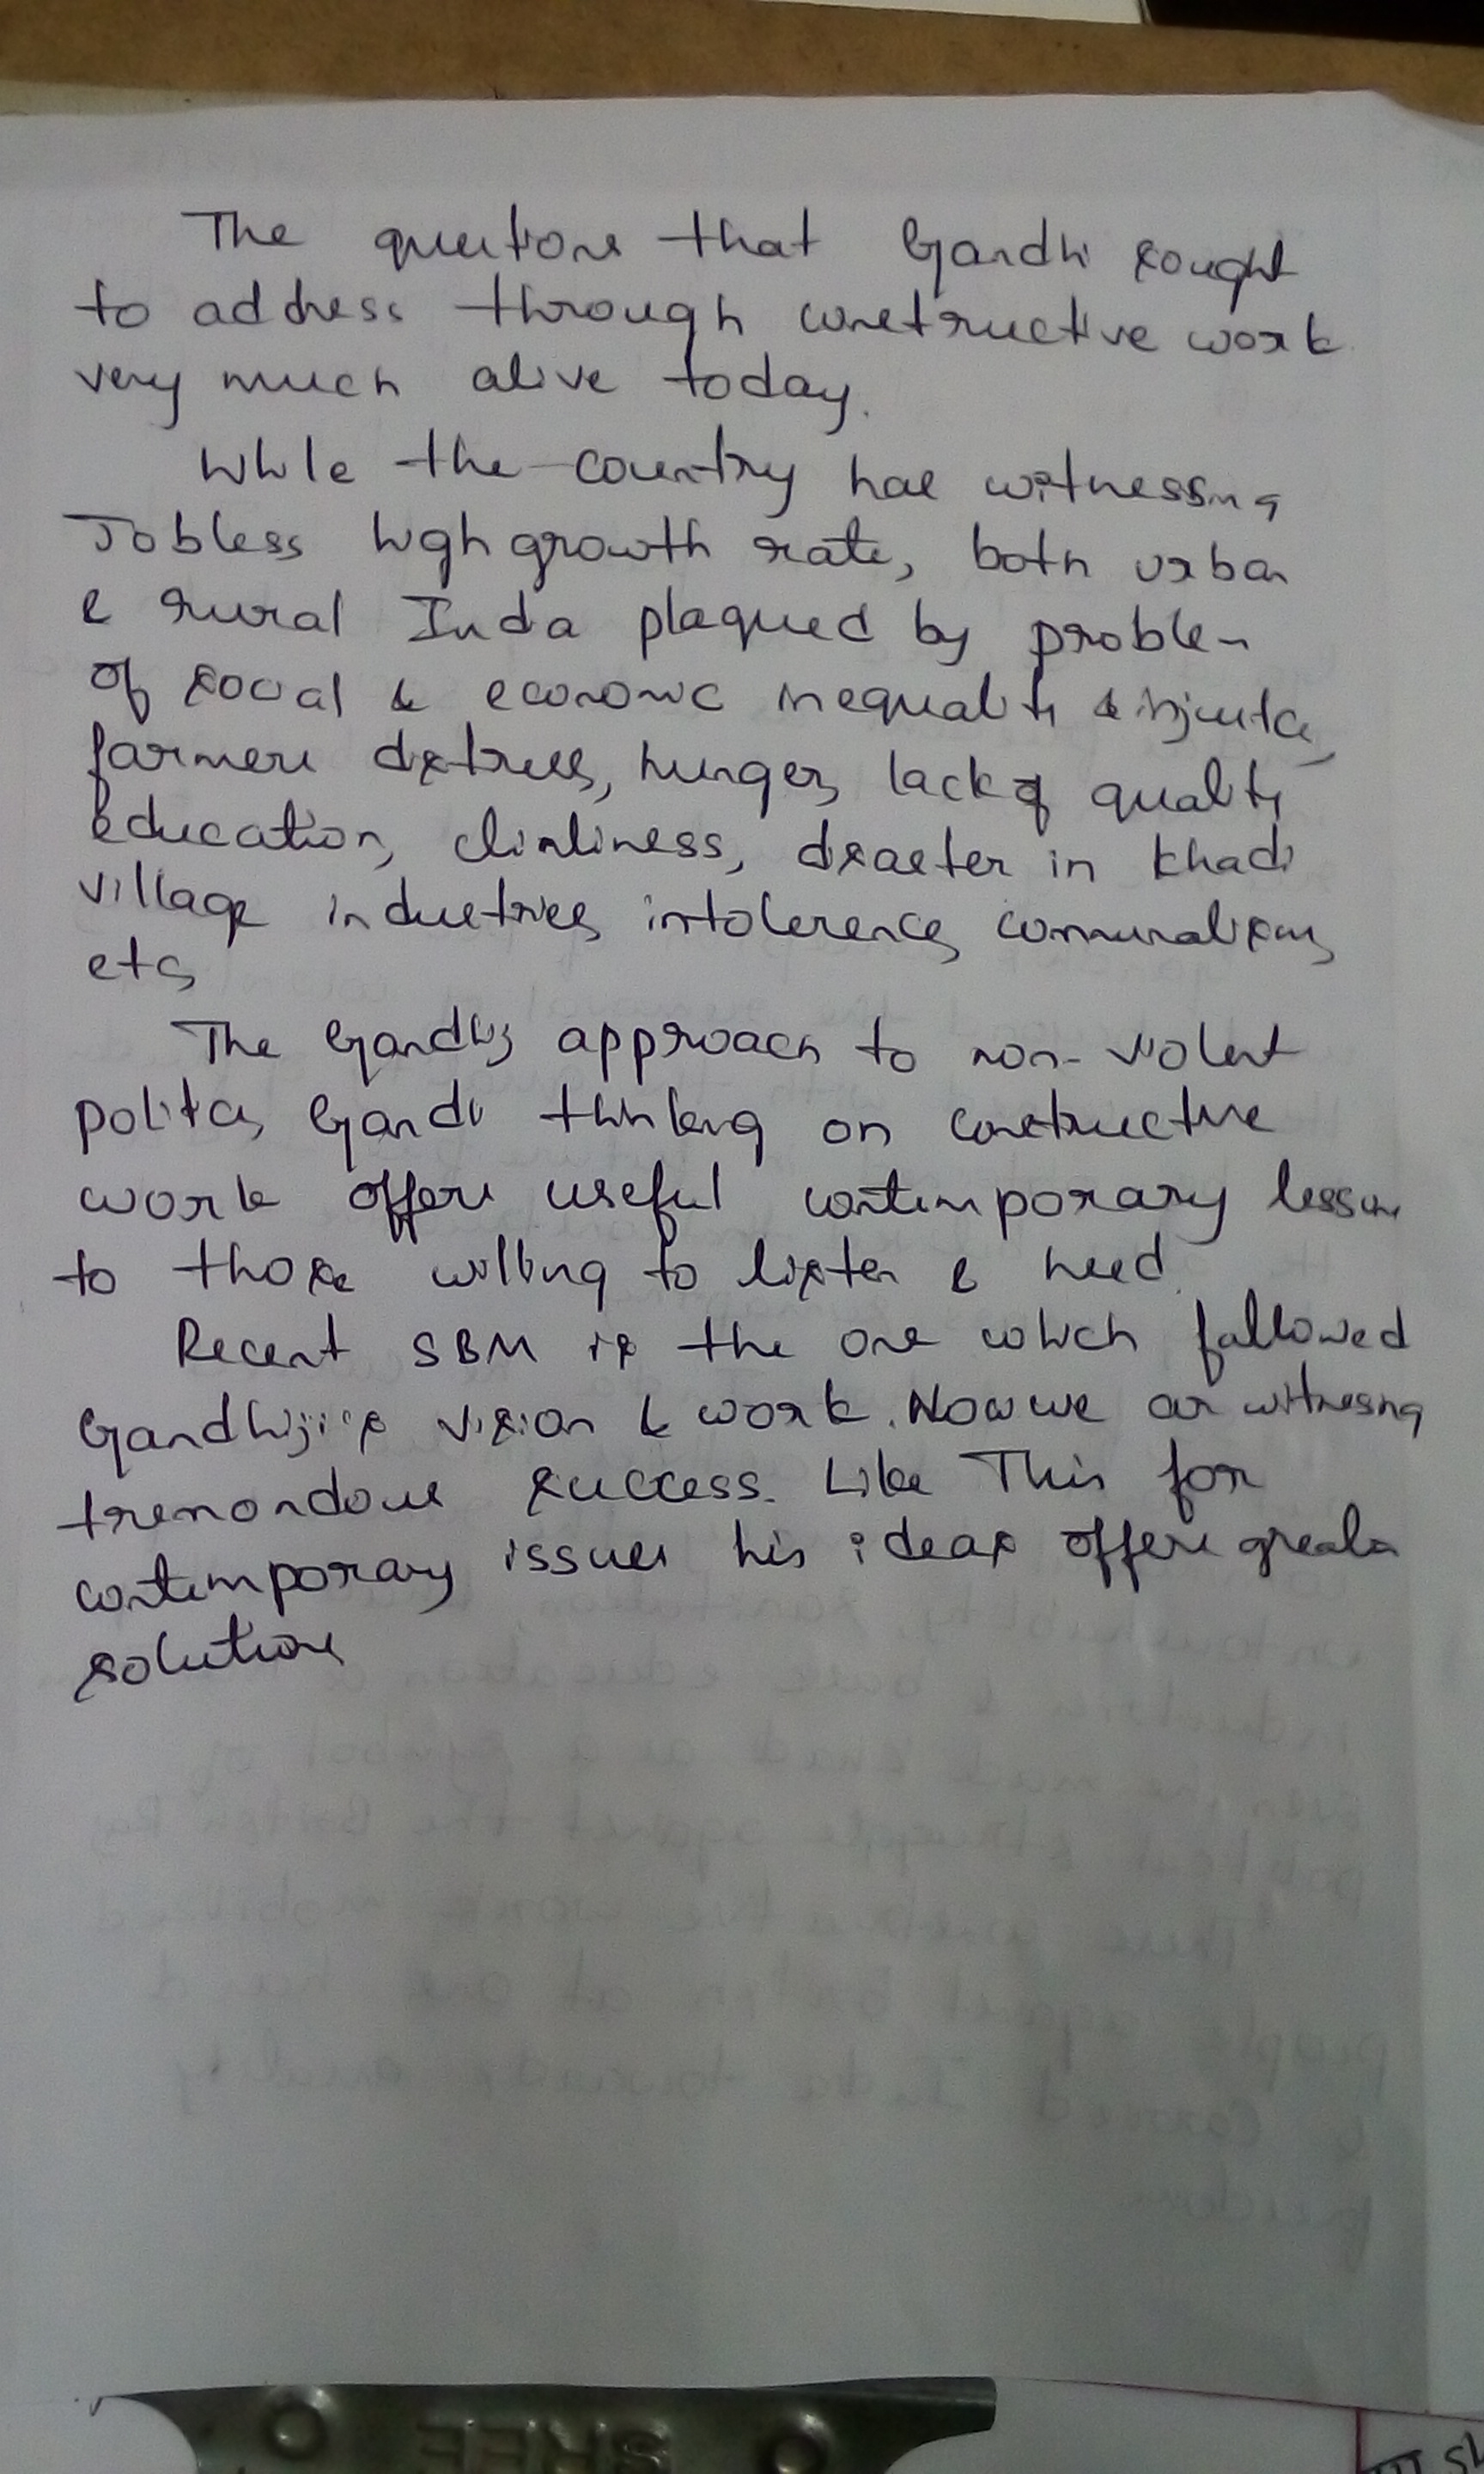 The questions that Gandhi sought
to address through constructive work
very much alive today.
While the country has witnessing
Jobless high growth rate, both urban
& rural India plaqued by problem
of social & economic inequality & injustice,
farmers distress, hunger, lack of quality
education, clinliness, disaster in khadi
village industries, intolerence, communalism,
etc,
The Gandhi's approach to non-violent
politics, Gandhi thinking on constructive
work offers useful contemporary lessons
to those willing to listen & heed.
Recent SBM is the one which fallowed
Gandhiji's vision & work. Now we are witnessing
tremondous success. Like This for
contemporary issues his ideas offers greater
solutions
SHEE